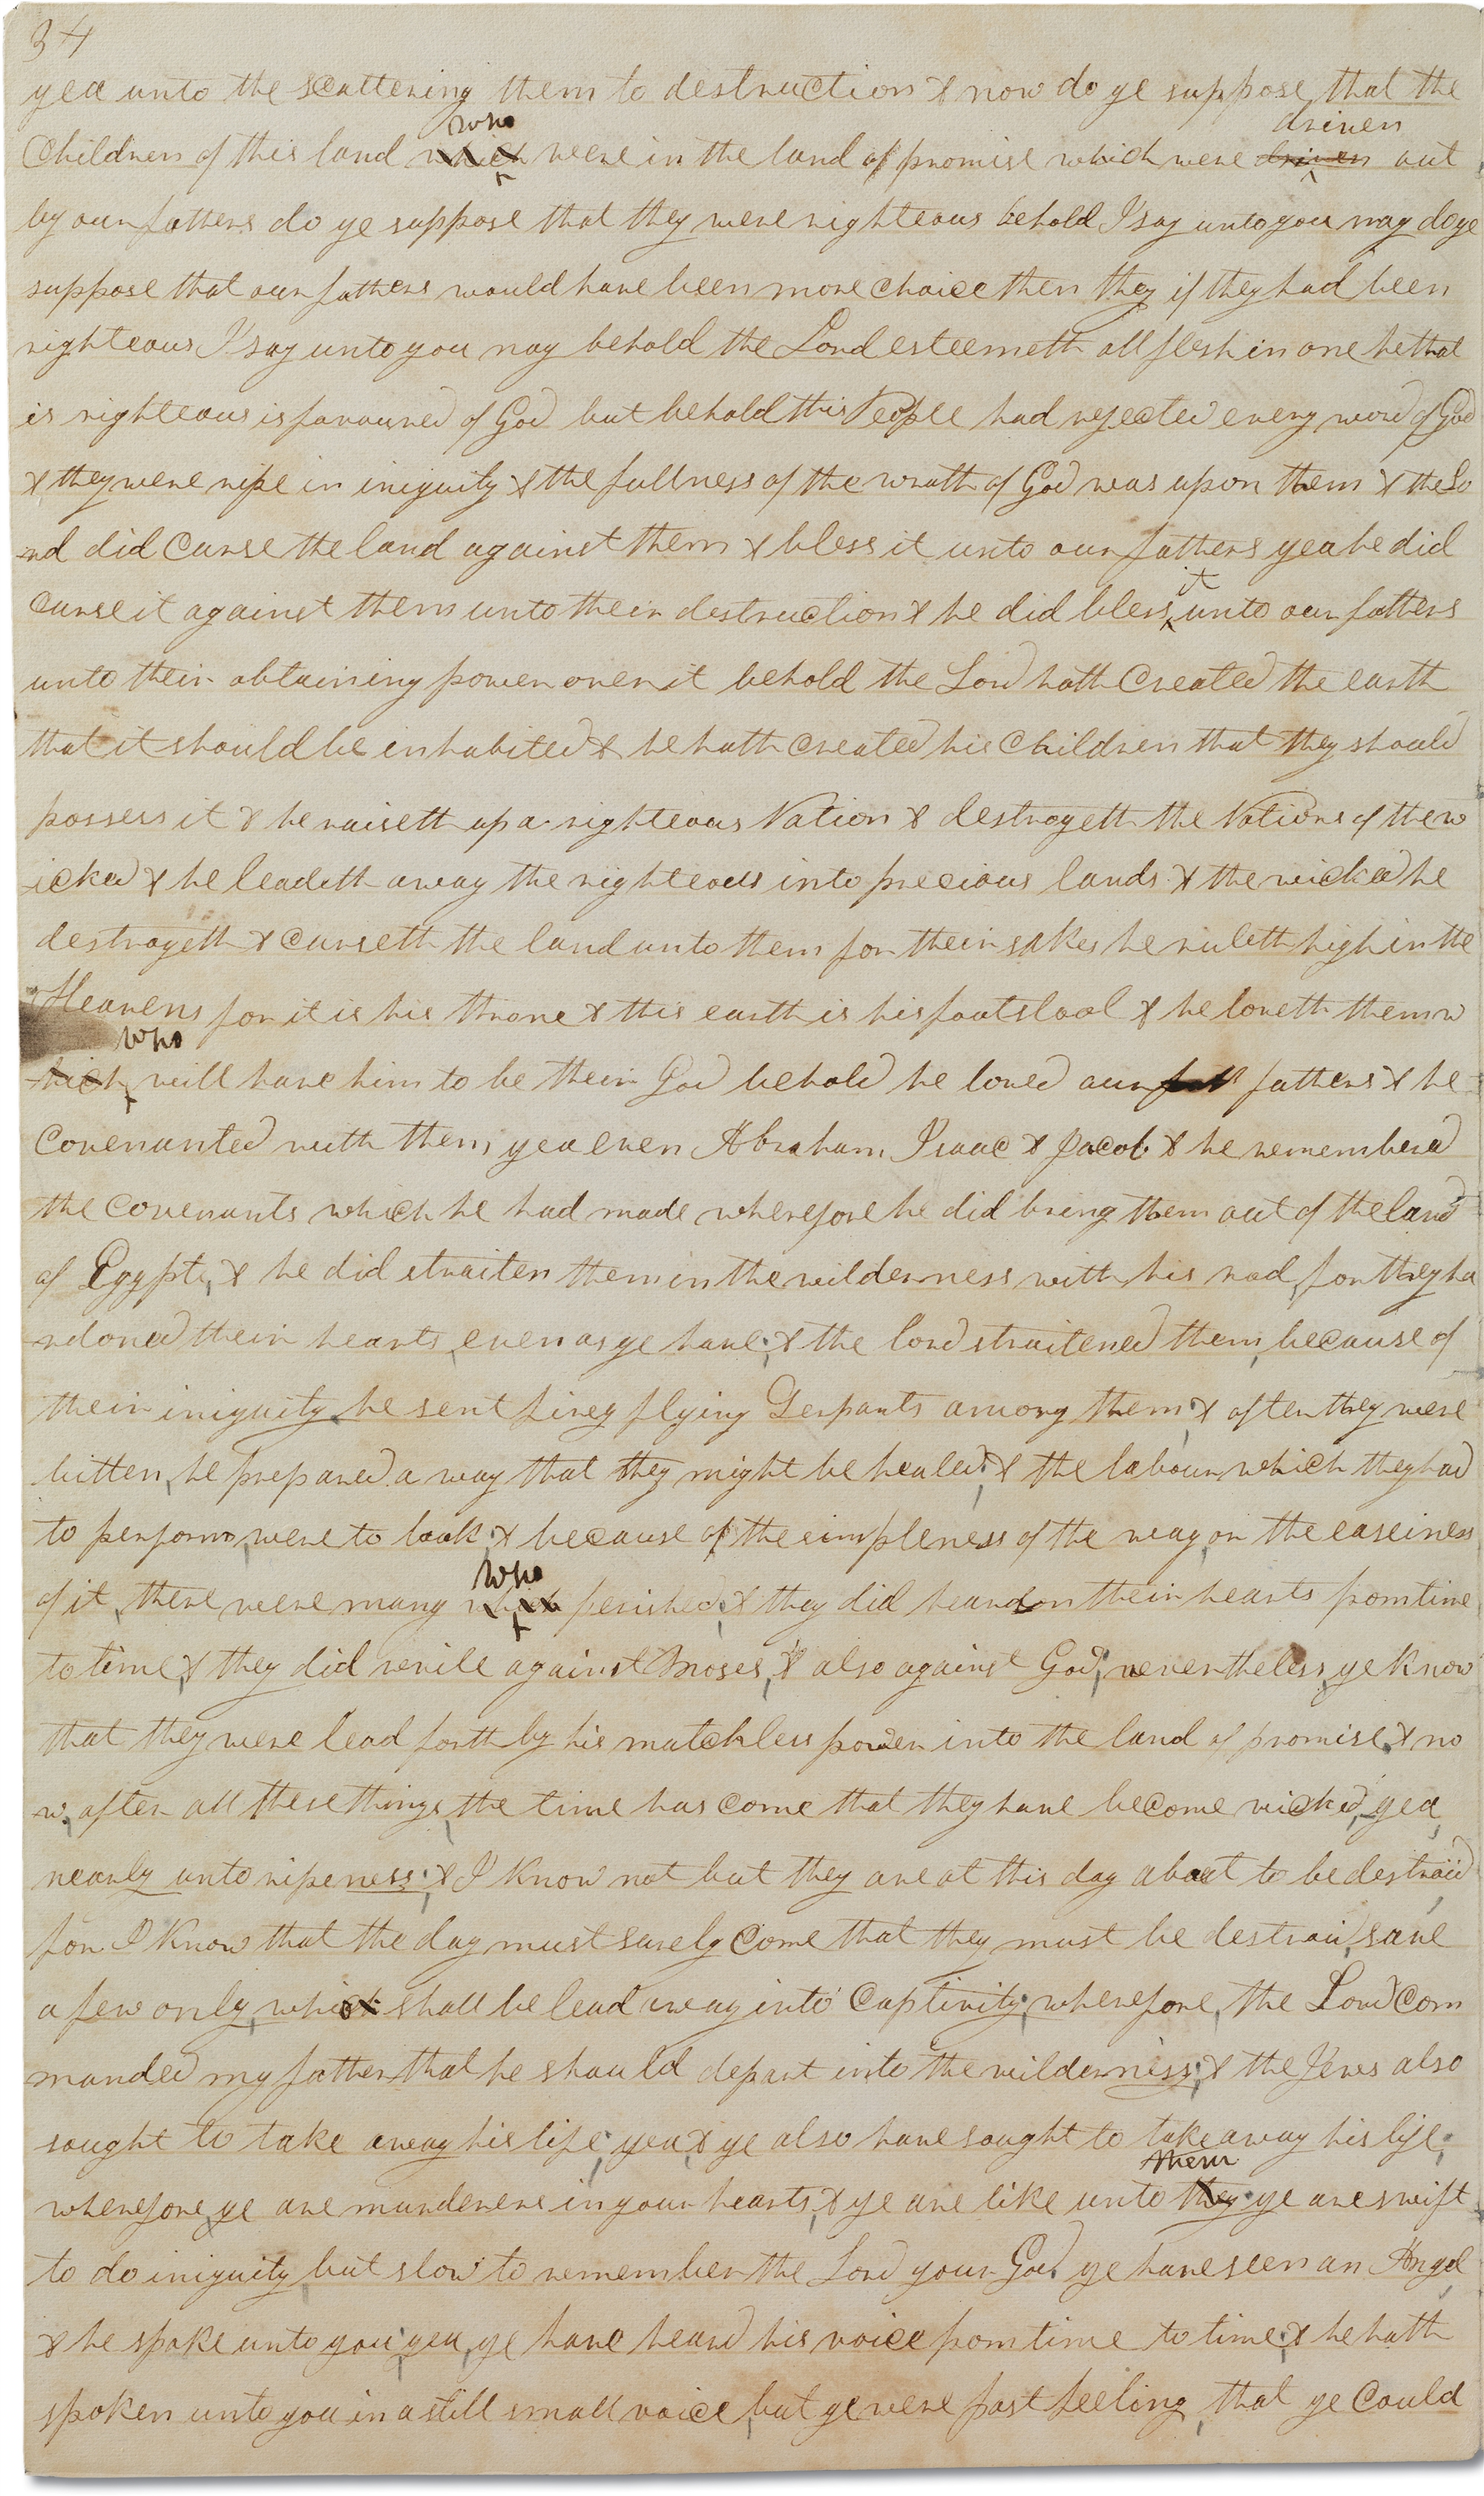 34
yea unto the scattering them to destruction & now do ye suppose that the
who driven
Children of this land which were in the land of promise which were driven out
by our fathers do ye suppose that they were righteous behold I say unto you nay do ye
suppose that our fathers would have been more choice then they if they had been
righteous I say unto you nay behold the Lord esteemeth all flesh in one he that
is righteous is favoured of God but behold this People had rejected every word of God
& they were ripe in iniquity & the fullness of the wrath of God was upon them & the Lo
rd did curse the land against them & bless it unto our fathers yea he did
it
curse it against them unto their destruction & he did bless unto our fathers
unto their obtaining power over it behold the Lord hath Created the earth
that it should be inhabited & he hath created his Children that they should
possess it & he raiseth up a righteous Nation & destroyeth the Nations of the w
icked & he leadeth away the righteous into precious lands & the wicked he
destroyeth & curseth the land unto them for their sakes he ruleth high in the
Heavens for it is his throne & this earth is his footstool & he loveth them w
who
hich will have him to be their God behold he loved our fathers & he
Covenanted with them yea even Abraham Isaac & Jacob & he remembered
the covenants which he had made wherefore he did bring them out of the land
of Egypt, & he did straiten them in the wilderness with his rod, for they ha
rdoned their hearts, even as ye have; & the lord straitened them, because of
their iniquity he sent firey flying Serpants among them; & after they were
bitten, he prepared a way that they might be healed; & the labour which they had
to perform, were to look; & because of the simpleness of the way, or the easeiness
who
of it, there were many which perished; & they did hearden their hearts from time
to time, & they did revile against Moses, & also against God; nevertheless, ye know
that they were lead forth by his matchless power into the land of promise, & no
w, after all these things, the time has come that they have become wicked, yea,
nearly unto ripeness; & I know not but they are at this day about to be destroid
for I know that the day must surely come that they must be destroid, save
a few only, which shall be lead away into captivity; wherefore, the Lord com
manded my father, that he should depart into the wilderness; & the Jews also
sought to take away his life; yea, & ye also have sought to take away his life;
them
wherefore, ye are murderers in your hearts, & ye are like unto they; ye are swift
to do iniquity, but slow to remember the Lord your God. ye have seen an Angel
& he spake unto you; yea, ye have heard his voice from time to time; & he hath
spoken unto you in a still small voice, but ye were past feeling, that ye could